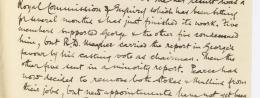 Royal Commission of Enquiry which has been sitting
for several months & has just finished its work. Five
members supported George & the other five condemned
him, but R.D. Meagher carried the report in George's
favour by his casting vote as chairman. Then the
other five sent in a minority report. Fraser has
now decided to remove both Stokes & Hutting from
their jobs, but new appointments have not yet been